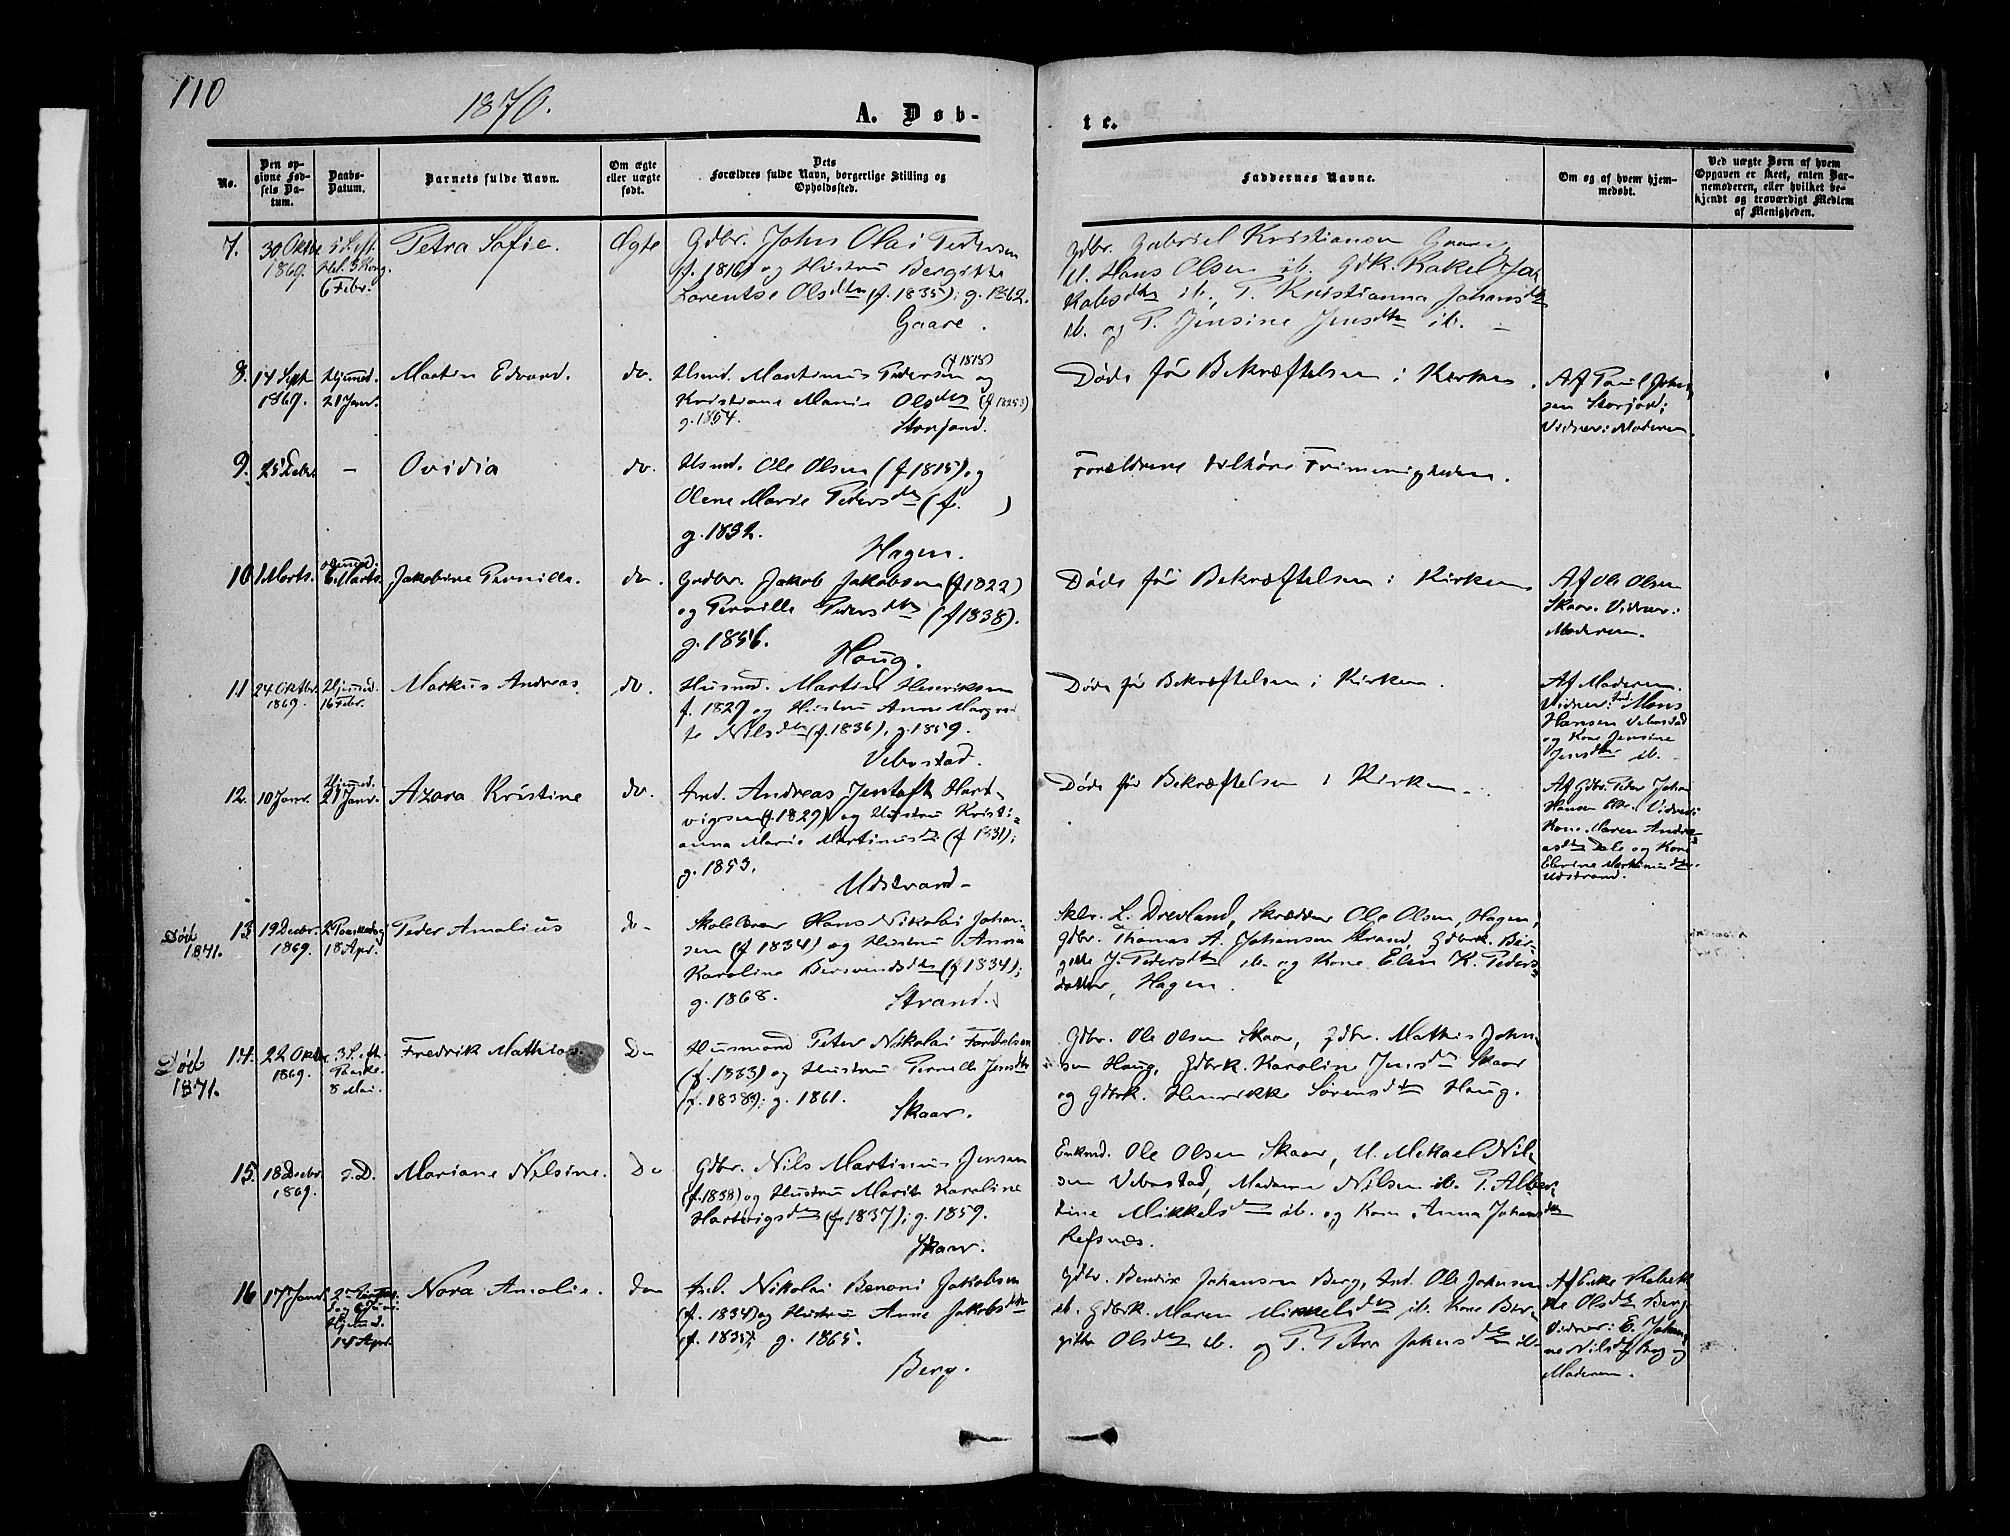 110
1870.
A. Døb-
te.
No.
Den op-
givne Fød-
sels Da-
tum.
Daabs-
Datum.
Barnets fulde Navn.
Om ægte
eller uægte
født.
Dets
Forældres fulde Navn, borgerlige Stilling og
Opholdssted.
Faddernes Navne.
Om og af hvem hjem-
medøbt.
Ved uægte Børn af hvem
Opgaven er skeet, enten Bar-
nemoderen, eller hvilket be-
kjendt og troværdigt Medlem
af Menigheden.
7.
30 Oktbr.
1869.
Hel. 3 Kong.
6 Febr.
Petra Sofie.
Ægte
Gdbr. John Olai Pedersen
(f. 1816) og Hustru Bergitte
Lorentse Olsdtr (f. 1835); g. 1862.
Gaare.
Gdbr. Gabriel Kristiansen Gaare,
U. Hans Olsen ib. Gdk. Rakel Ja-
kobsdtr ib., P. Kristianna Johansdtr
ib. og P. Jensine Jensdtr ib.
8.
14 Sept
1869.
Hjemmed.
21 Janr.
Martin Edvard.
do.
Husmd. Martinus Pedersen (f 1818) og
Kristiane Marie Olsdtr (f 1825)
g. 1854.
Storjord.
Døde før Bekræftelsen i Kirken.
Af Paul Johan-
sen Storjord;
Vidner: Moderen.
9.
25 Febr.
-
Ovidia
do.
Husmd. Ole Olsen (f 1815) og
Olene Marie Pedersdtr (f. )
g. 1852.
Hagen.
Forældrene tilhøre Frimenigheden.
10
1 Marts.
Hjemmed:
6 Marts.
Jakobine Pernille.
do.
Gdbr. Jakob Jakobsen (f 1822)
og Pernille Pedersdtr (f 1838).
g. 1856.
Haug.
Døde før Bekræftelsen i Kirken
Af Ole Olsen
Skaar. Vidner:
Moderen.
11
24 Oktbr
1869.
Hjemmed.
16 Febr.
Markus Andreas
do.
Husmd. Martin Henriksen
f. 1829 og Hustru Anne Margre-
te Nilsdtr (f. 1836), g. 1859.
Vebostad.
Døde før Bekræftelsen i Kirken.
Af Moderen.
Vidner: Ind. Mons
Hansen Vebostad
og Kone Jensine
Jensdtr ib.
12.
10 Janr.
Hjemmed.
21 Janr.
Azora Kristine
do.
Ind. Andreas Jentoft Hart-
vigsen (f. 1829) og Hustru Kristi-
anna Marie Martinusdtr (f 1831);
g. 1853.
Udstrand-
Døde før Bekræftelsen i Kirken.
Af Gdbr. Peter Johan
Hansen Vidner:
Kone Maren Andre-
asdtr og Kone
Elevine Martinusdtr
Udstrand.
Død
1871.
13.
19 Decbr.
1869.
2 Paaskedag
18 Apr.
Peder Amalius
do-
Skolelærer Hans Nikolai Johan-
sen (f 1834) og Hustru Anna
Karoline Bersvendsdtr (f 1834);
g. 1868.
Strand.
Sklr. L. Drevland, Skrædder Ole Olsen, Hagen,
Gdbr. Thomas A. Johansen Strand, Gdbrk. Ber-
gitte J. Pedersdtr ib. og Kone Elen K. Peders-
datter, Hagen.
Død
1871.
14.
22 Oktbr.
1869.
3 S. eft.
Paaske.
8 Mai.
Fredrik Mathias
Do
Husmand Peter Nikolai Fordelsen
(f. 1833) og Hustru Pernille Jensdtr
(f. 1838); g. 1861.
Skaar.
Gdbr. Ole Olsen Skaar, Gdbr. Mathis John-
sen Haug, Gdbrk. Karoline Jensdtr Skaar
og Gdbrk. Henrikke Sørensdtr Haug.
15.
18 Decbr
1869.
s. D.
Mariane Nilsine.
Do
Gdbr. Nils Martinus Jensen
(f. 1838) og Hustru Marit Karoline
Hartvigsdtr (f. 1837); g. 1859.
Skaar.
Enkmd. Ole Olsen Skaar, U. Mekael Nil-
sen Vebostad, Madame Nilsen ib. P. Alber-
tine Mikkelsdtr ib. og Kone Anna Johansdtr
Refsnæs.
16
17 Janr
Hjemmed.
14 Apr.
Nora Amalie.
do
Ind. Nikolai Benoni Jakobsen
(f. 1834) og Hustru Anne Jakobsdtr
(f. 1835); g. 1865.
Berg.
Gdbr. Bendix Johansen Berg, Ind. Ole Johnsen
ib. Gdbrk. Maren Mikkelsdtr ib. Kone Ber-
gitte Olsdtr ib. og P. Petra Johnsdtr ib-
Af Enke Rebek-
ke Olsdtr Berg
Vidner: E. Johan-
ne Nilsdtr Berg og
Moderen.